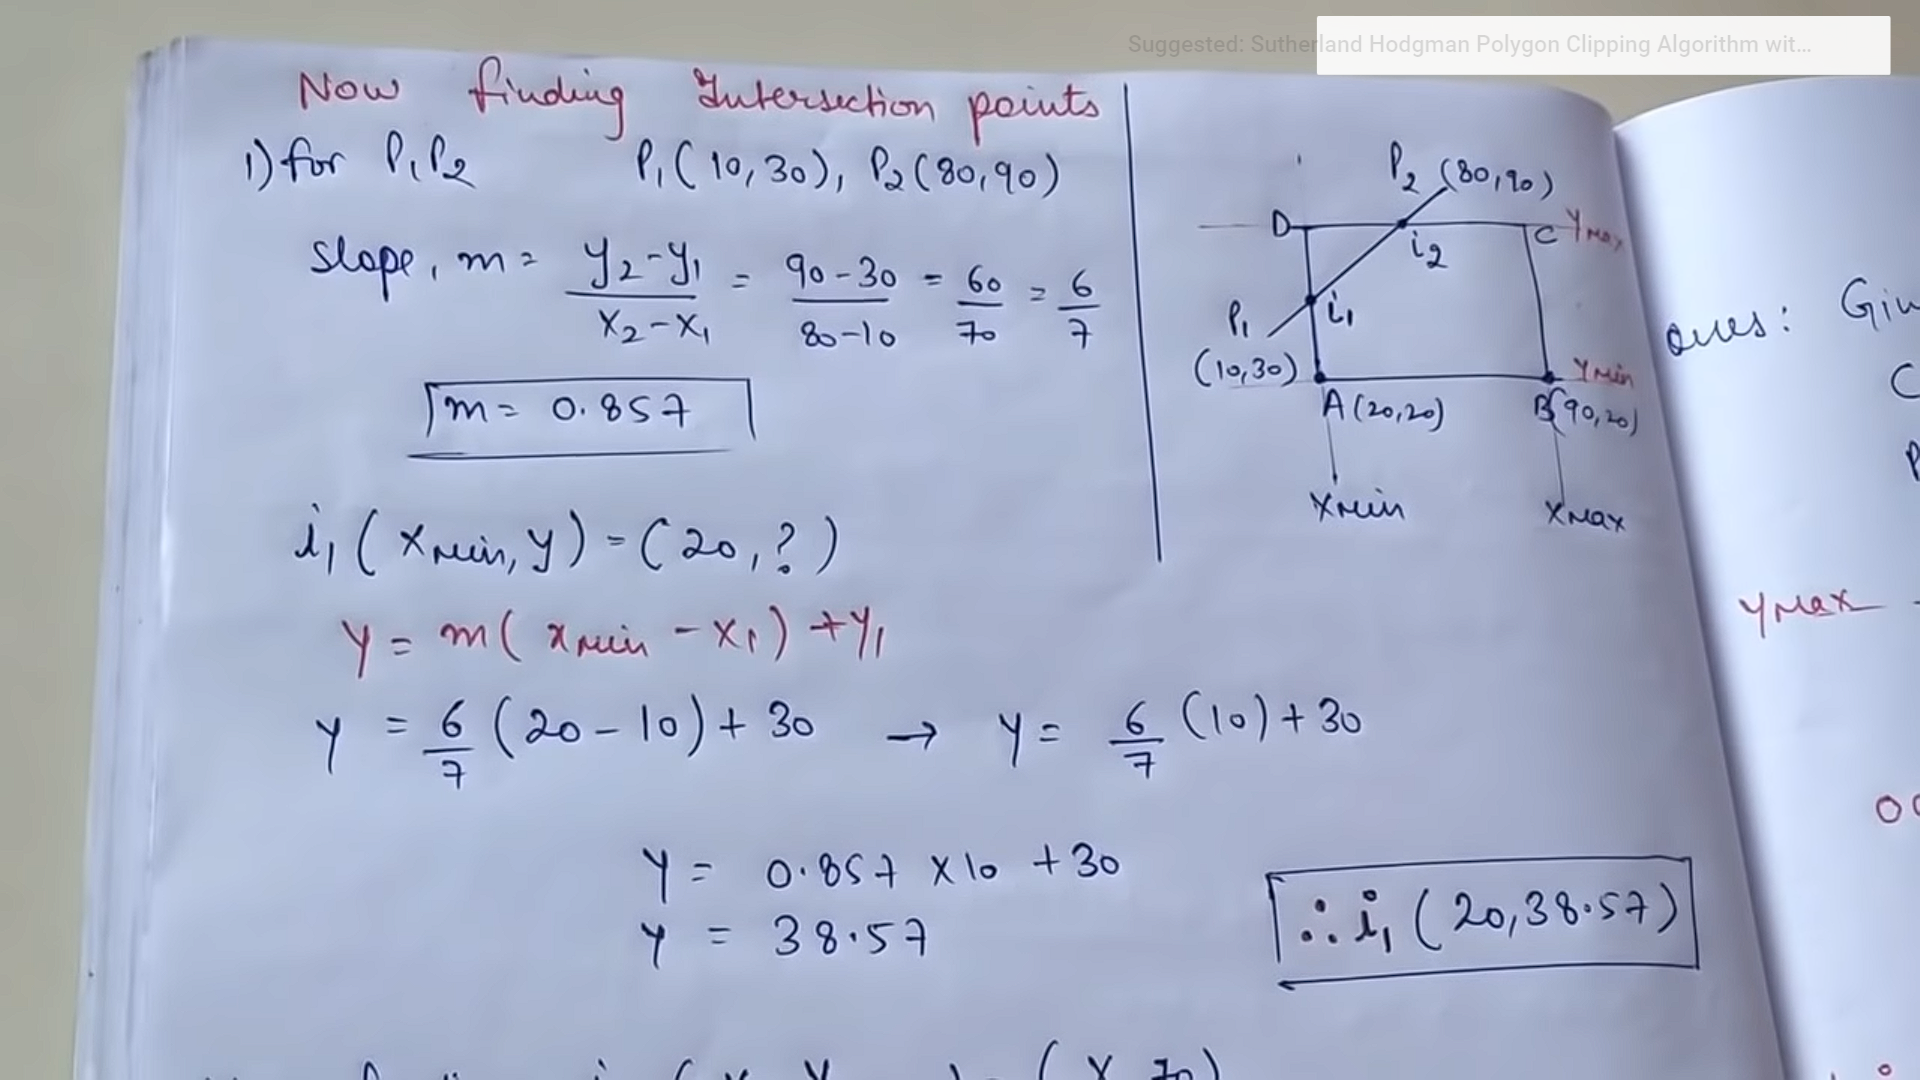 Suggested: Sutherland Hodgman Polygon Clipping Algorithm wit...
Now finding Intersection points
1) for P₁P₂ P₁(10,30), P₂(80,90)
slope, m = y₂-y₁ / x₂-x₁ = 90-30 / 80-10 = 60/70 = 6/7
m = 0.857
i₁(xmin, y) = (20, ?)
y = m(xmin - x₁) + y₁
y = 6/7 (20-10) + 30 → y = 6/7 (10) + 30
y = 0.857 x 10 + 30
y = 38.57
∴ i₁ (20, 38.57)
P₂ (80,90)
D C YMax
i₂
P₁ i₁
(10,30) Ymin
A(20,20) B(90,20)
Xmin XMax
YMax